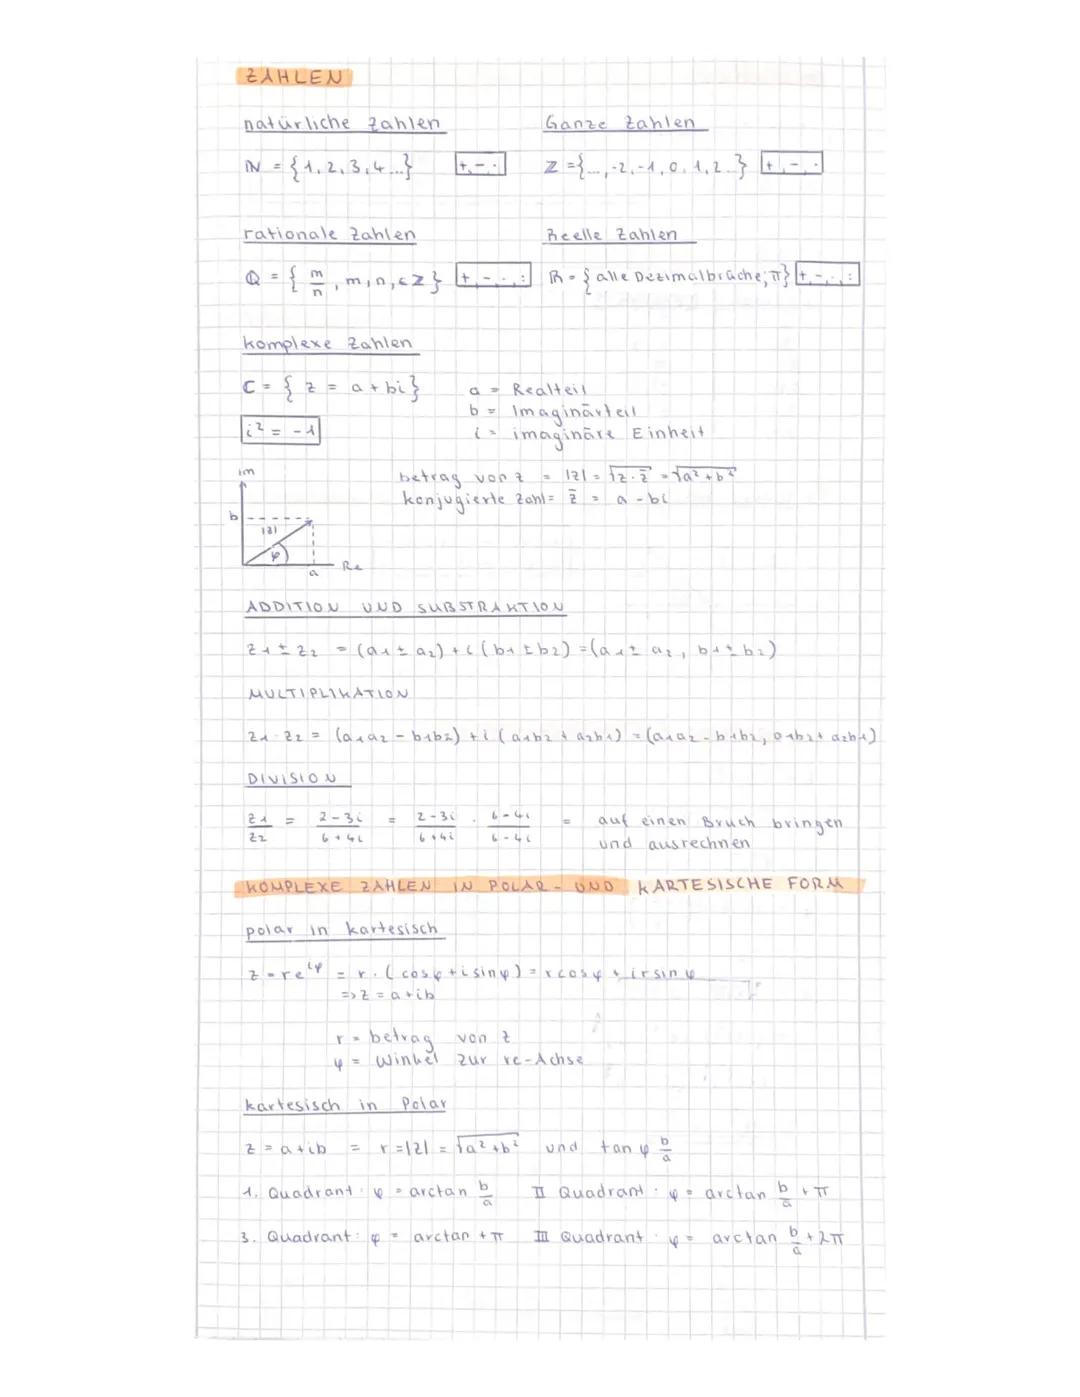 ZAHLEN
natürliche Zahlen
Ganze Zahlen
ℕ = {1, 2, 3, 4 ...} +, -, ·
ℤ = {..., -2, -1, 0, 1, 2..} +, -, ·
rationale Zahlen
Reelle Zahlen
ℚ = { m/n , m, n, ∈ ℤ } +, -, ·, :
ℝ = { alle Dezimalbrüche; π} +, -, ·, :
komplexe Zahlen
ℂ = { z = a + bi }
a = Realteil
b = Imaginärteil
i² = -1
i = imaginäre Einheit
betrag von z = |z| = √z · z̄ = √a² + b²
konjugierte Zahl = z̄ = a - bi
im
b
|z|
φ
a
Re
ADDITION UND SUBSTRAKTION
z1 ± z2 = (a1 ± a2) + i (b1 ± b2) = (a1 ± a2, b1 ± b2)
MULTIPLIKATION
z1 · z2 = (a1a2 - b1b2) + i (a1b2 + a2b1) = (a1a2 - b1b2, a1b2 + a2b1)
DIVISION
z1/z2 = 2-3i/6+4i = 2-3i/6+4i · 6-4i/6-4i = auf einen Bruch bringen
und ausrechnen
KOMPLEXE ZAHLEN IN POLAR- UND KARTESISCHE FORM
polar in kartesisch
z = re^iφ = r · (cosφ + i sinφ) = r cosφ + i r sin φ
=> z = a + ib
r = betrag von z
φ = Winkel zur re-Achse
kartesisch in Polar
z = a + ib = r = |z| = √a² + b² und tan φ b/a
1. Quadrant: φ = arctan b/a
II Quadrant: φ = arctan b/a + π
3. Quadrant: φ = arctan + π
III Quadrant: φ = arctan b/a + 2π